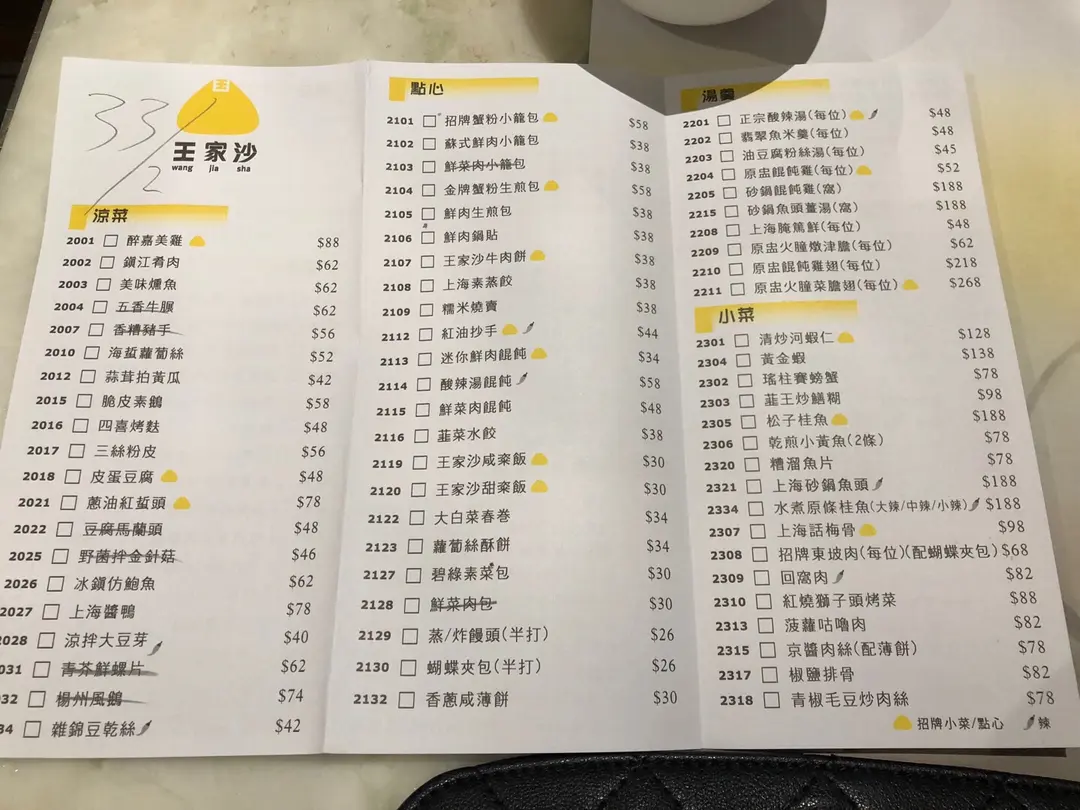 33/2
王家沙
wang jia sha
涼菜
2001 醉嘉美雞 $88
2002 鎮江肴肉 $62
2003 美味燻魚 $62
2004 五香牛𦟌 $62
2007 香糟豬手 $56
2010 海蜇蘿蔔絲 $52
2012 蒜茸拍黃瓜 $42
2015 脆皮素鵝 $58
2016 四喜烤麩 $48
2017 三絲粉皮 $56
2018 皮蛋豆腐 $48
2021 蔥油紅蜇頭 $78
2022 豆腐馬蘭頭 $48
2025 野菌拌金針菇 $46
2026 冰鎮仿鮑魚 $62
2027 上海醬鴨 $78
2028 涼拌大豆芽 $40
031 青芥鮮螺片 $62
32 楊州風鵝 $74
34 雜錦豆乾絲 $42
點心
2101 招牌蟹粉小籠包 $58
2102 蘇式鮮肉小籠包 $38
2103 鮮菜肉小籠包 $38
2104 金牌蟹粉生煎包 $58
2105 鮮肉生煎包 $38
2106 鮮肉鍋貼 $38
2107 王家沙牛肉餅 $38
2108 上海素蒸餃 $38
2109 糯米燒賣 $38
2112 紅油抄手 $44
2113 迷你鮮肉餛飩 $34
2114 酸辣湯餛飩 $58
2115 鮮菜肉餛飩 $48
2116 韮菜水餃 $38
2119 王家沙咸粢飯 $30
2120 王家沙甜粢飯 $30
2122 大白菜春巻 $34
2123 蘿蔔絲酥餅 $34
2127 碧綠素菜包 $30
2128 鮮菜肉包 $30
2129 蒸/炸饅頭(半打) $26
2130 蝴蝶夾包(半打) $26
2132 香蔥咸薄餅 $30
湯羹
2201 正宗酸辣湯(每位) $48
2202 翡翠魚米羹(每位) $48
2203 油豆腐粉絲湯(每位) $45
2204 原盅餛飩雞(每位) $52
2205 砂鍋餛飩雞(窩) $188
2215 砂鍋魚頭薑湯(窩) $188
2208 上海腌篤鮮(每位) $48
2209 原盅火腫燉津膽(每位) $62
2210 原盅餛飩雞翅(每位) $218
2211 原盅火腫菜膽翅(每位) $268
小菜
2301 清炒河蝦仁 $128
2304 黃金蝦 $138
2302 瑤柱賽螃蟹 $78
2303 韮王炒鱔糊 $98
2305 松子桂魚 $188
2306 乾煎小黃魚(2條) $78
2320 糟溜魚片 $78
2321 上海砂鍋魚頭 $188
2334 水煮原條桂魚(大辣/中辣/小辣) $188
2307 上海話梅骨 $98
2308 招牌東坡肉(每位)(配蝴蝶夾包) $68
2309 回窩肉 $82
2310 紅燒獅子頭烤菜 $88
2313 菠蘿咕嚕肉 $82
2315 京醬肉絲(配薄餅) $78
2317 椒鹽排骨 $82
2318 青椒毛豆炒肉絲 $78
招牌小菜/點心 辣